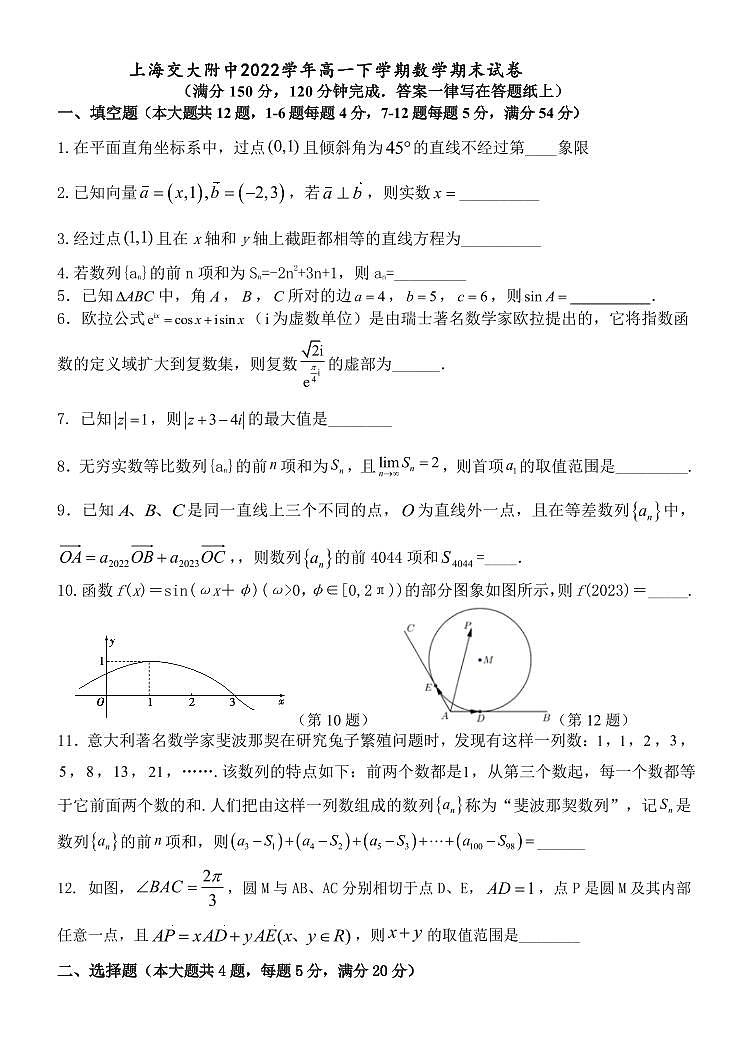 上海交大附中2022学年高一下学期数学期末试卷
（满分 150 分，120 分钟完成．答案一律写在答题纸上）
一、填空题（本大题共 12 题，1-6 题每题 4 分，7-12 题每题 5 分，满分 54 分）
1.在平面直角坐标系中，过点(0,1)且倾斜角为45°的直线不经过第____象限
2.已知向量a⃗=(x,1),b⃗=(−2,3)，若a⃗⊥b⃗，则实数x=__________
3.经过点(1,1)且在 x 轴和 y 轴上截距都相等的直线方程为__________
4.若数列{aₙ}的前 n 项和为 Sₙ=-2n²+3n+1，则 aₙ=_________
5．已知ΔABC中，角A，B，C所对的边a=4，b=5，c=6，则sin A=__________．
6．欧拉公式e^{ix}=cos x+i sin x（i为虚数单位）是由瑞士著名数学家欧拉提出的，它将指数函
数的定义域扩大到复数集，则复数√2i/e^{(π/4)i}的虚部为______．
7. 已知|z|=1，则|z+3−4i|的最大值是________
8．无穷实数等比数列{aₙ}的前n项和为Sₙ，且lim_{n→∞}Sₙ=2，则首项a₁的取值范围是_________．
9．已知A、B、C是同一直线上三个不同的点，O为直线外一点，且在等差数列{aₙ}中，
OA=a₂₀₂₂OB+a₂₀₂₃OC，，则数列{aₙ}的前 4044 项和S₄₀₄₄=____．
10.函数 f(x)=sin(ωx+φ)(ω>0,φ∈[0,2π))的部分图象如图所示,则 f(2023)=_____．
y
1
O 1 2 3 x
（第 10 题）
C P
M
E
A D B
（第 12 题）
11．意大利著名数学家斐波那契在研究兔子繁殖问题时，发现有这样一列数：1，1，2，3，
5，8，13，21，…….该数列的特点如下：前两个数都是1，从第三个数起，每一个数都等
于它前面两个数的和.人们把由这样一列数组成的数列{aₙ}称为“斐波那契数列”，记Sₙ是
数列{aₙ}的前n项和，则(a₃−S₁)+(a₄−S₂)+(a₅−S₃)+⋯+(a₁₀₀−S₉₈)=______
12. 如图，∠BAC=2π/3，圆 M 与 AB、AC 分别相切于点 D、E，AD=1，点 P 是圆 M 及其内部
任意一点，且AP=xAD+yAE(x、y∈R)，则x+y的取值范围是________
二、选择题（本大题共 4 题，每题 5 分，满分 20 分）